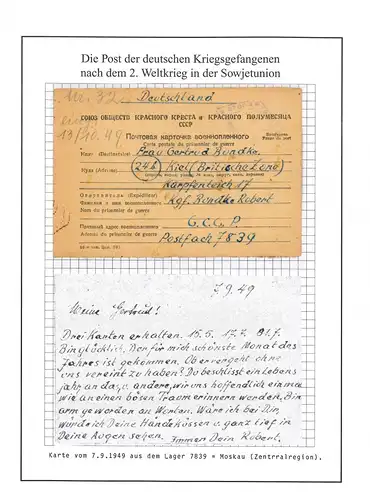 Die Post der deutschen Kriegsgefangenen
nach dem 2. Weltkrieg in der Sowjetunion
Nr. 32 Deutschland
СОЮЗ ОБЩЕСТВ КРАСНОГО КРЕСТА и КРАСНОГО ПОЛУМЕСЯЦА
СССР
13/10.49
Почтовая карточка военнопленного
Carte postale du prisonnier de guerre
Кому (Destinataire) Frau Gertrud Rundke.
Куда (Adresse) (24b) Kiel (Britische Zone)
Karpfenteich 17
Отправитель (Expéditeur)
Фамилия и имя военнопленного Kgf. Rundke Robert
Nom du prisonnier de guerre
Почтовый адрес военнопленного C.C.C.P.
Adresse du prisonnier de guerre Postfach 7839
7.9.49
Meine Gertrud!
Drei Karten erhalten. 15.5. 17.7. 31.7.
Bin glücklich. Der für mich schönste Monat des
Jahres ist gekommen. Ob er vergeht ohne
uns vereint zu haben? Du beschliesst ein Lebens
jahr, an das, v. andere, wir uns hoffendlich einmal
wie an einen bösen Traum erinnern werden. Bin
arm geworden an Worten. Wäre ich bei Dir,
würde ich Deine Hände küssen u. ganz tief in
Deine Augen sehen. Immer Dein Robert.
Karte vom 7.9.1949 aus dem Lager 7839 = Moskau (Zentrralregion).